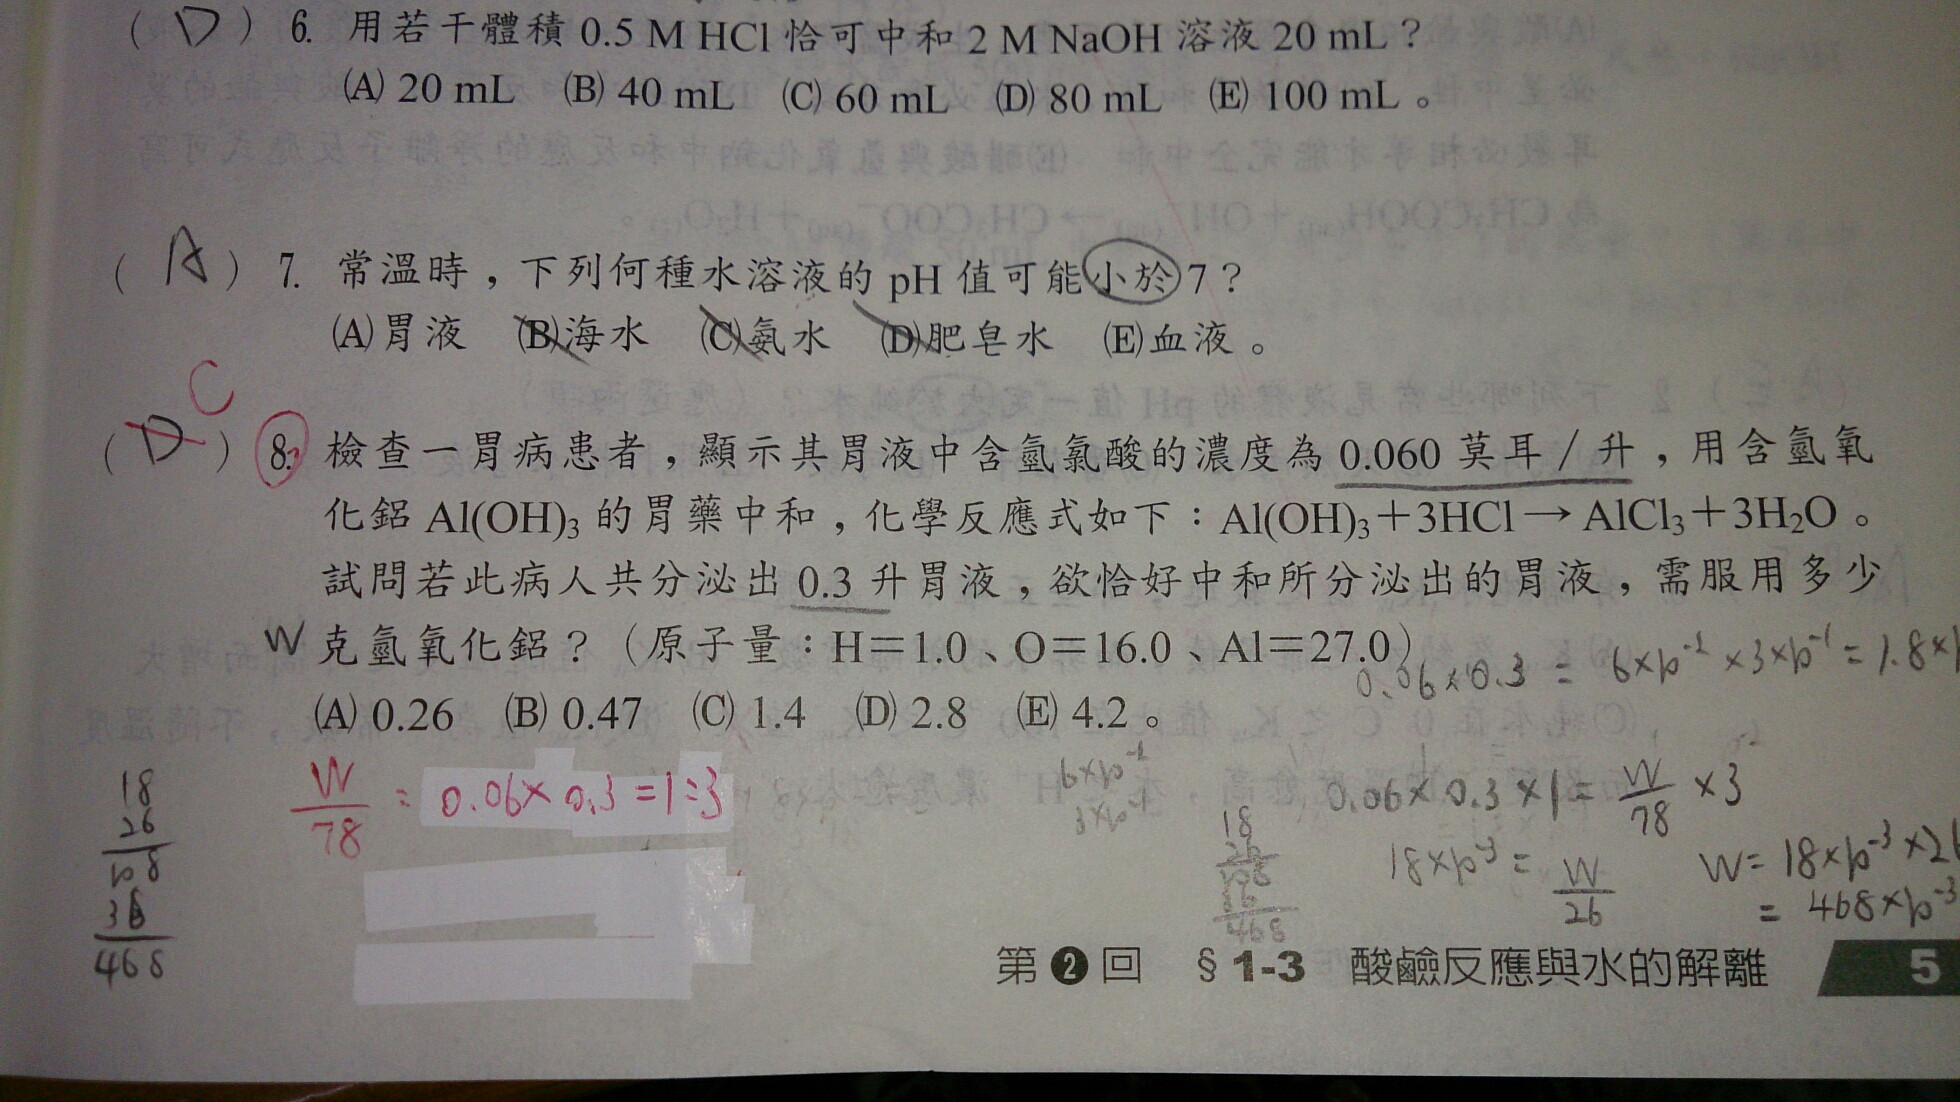 (D) 6. 用若干體積 0.5 M HCl 恰可中和 2 M NaOH 溶液 20 mL?
(A) 20 mL (B) 40 mL (C) 60 mL (D) 80 mL (E) 100 mL。
(A) 7. 常溫時,下列何種水溶液的 pH 值可能小於 7?
(A)胃液 (B)海水 (C)氨水 (D)肥皂水 (E)血液。
C
(D) 8. 檢查一胃病患者,顯示其胃液中含氫氯酸的濃度為 0.060 莫耳/升,用含氫氧
化鋁 Al(OH)₃ 的胃藥中和,化學反應式如下:Al(OH)₃+3HCl→AlCl₃+3H₂O。
試問若此病人共分泌出 0.3 升胃液,欲恰好中和所分泌出的胃液,需服用多少
W 克氫氧化鋁?(原子量:H=1.0、O=16.0、Al=27.0)
0.06×0.3 = 6×10⁻² ×3×10⁻¹ = 1.8×1
(A) 0.26 (B) 0.47 (C) 1.4 (D) 2.8 (E) 4.2。
W/78 : 0.06×0.3=1:3
6×10⁻²
3×10⁻¹
0.06×0.3×1= W/78 ×3
18×10⁻³ = W/26
W= 18×10⁻³×26
= 468×10⁻³
18
26
108
36
468
18
26
108
36
468
第 2 回 §1-3 酸鹼反應與水的解離 5